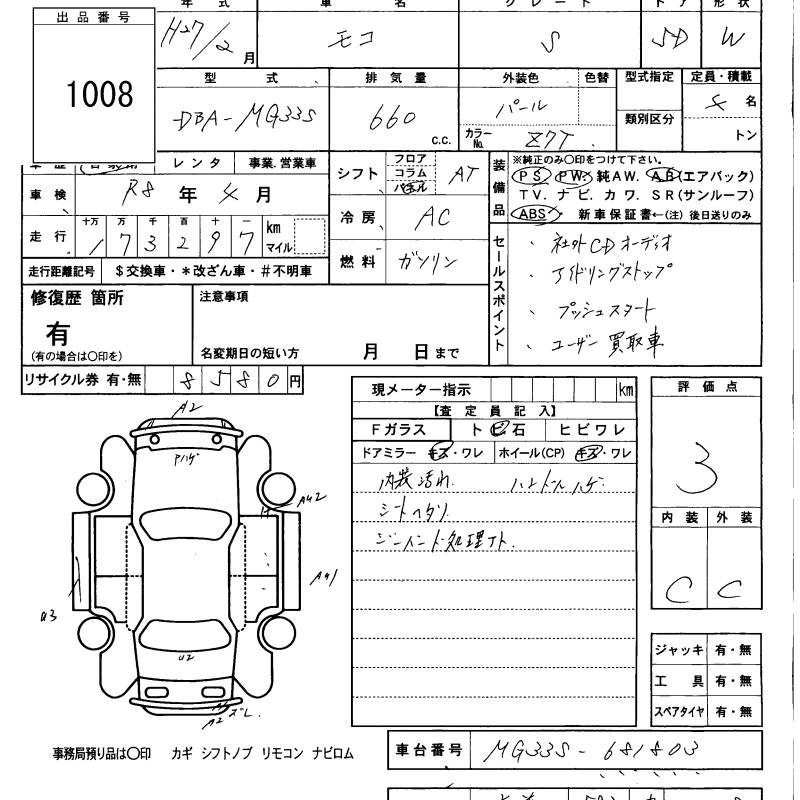 出品番号
1008
年 式 車 名 グレード ドア 形状
H27/2 月 モコ S 5D W
型 式 排気量 外装色 色替 型式指定 定員・積載
DBA-MG33S 660 c.c. パール 4 名
カラーNo. Z7T 類別区分 トン
車歴 自家用 レンタ 事業.営業車
車検 R8 年 4 月
走行 十万 万 千 百 十 一
1 7 3 2 9 7 km マイル
走行距離記号 $交換車・*改ざん車・#不明車
シフト フロア コラム パネル AT
冷房 AC
燃料 ガソリン
装備品
※純正のみ○印をつけて下さい。
PS PW・純AW. AB(エアバック)
TV. ナビ. カワ. SR(サンルーフ)
ABS・ 新車保証書←(注) 後日送りのみ
セールスポイント
、社外CDオーディオ
、アイドリングストップ
、プッシュスタート
、ユーザー買取車
修復歴 箇所
有
(有の場合は○印を)
注意事項
名変期日の短い方 月 日まで
リサイクル券 有・無 8580円
現メーター指示 km
【査定員記入】
Fガラス トビ石 ヒビワレ
ドアミラー キズ・ワレ ホイール(CP) キズ・ワレ
内装汚れ ハンドルハゲ
シートヘタリ
評価点
3
内装 外装
C C
A2
Aハゲ
A42
A41
U3
U2
A2 ズレ
ジャッキ 有・無
工具 有・無
スペアタイヤ 有・無
事務局預り品は○印 カギ シフトノブ リモコン ナビロム
車台番号 MG33S-681803